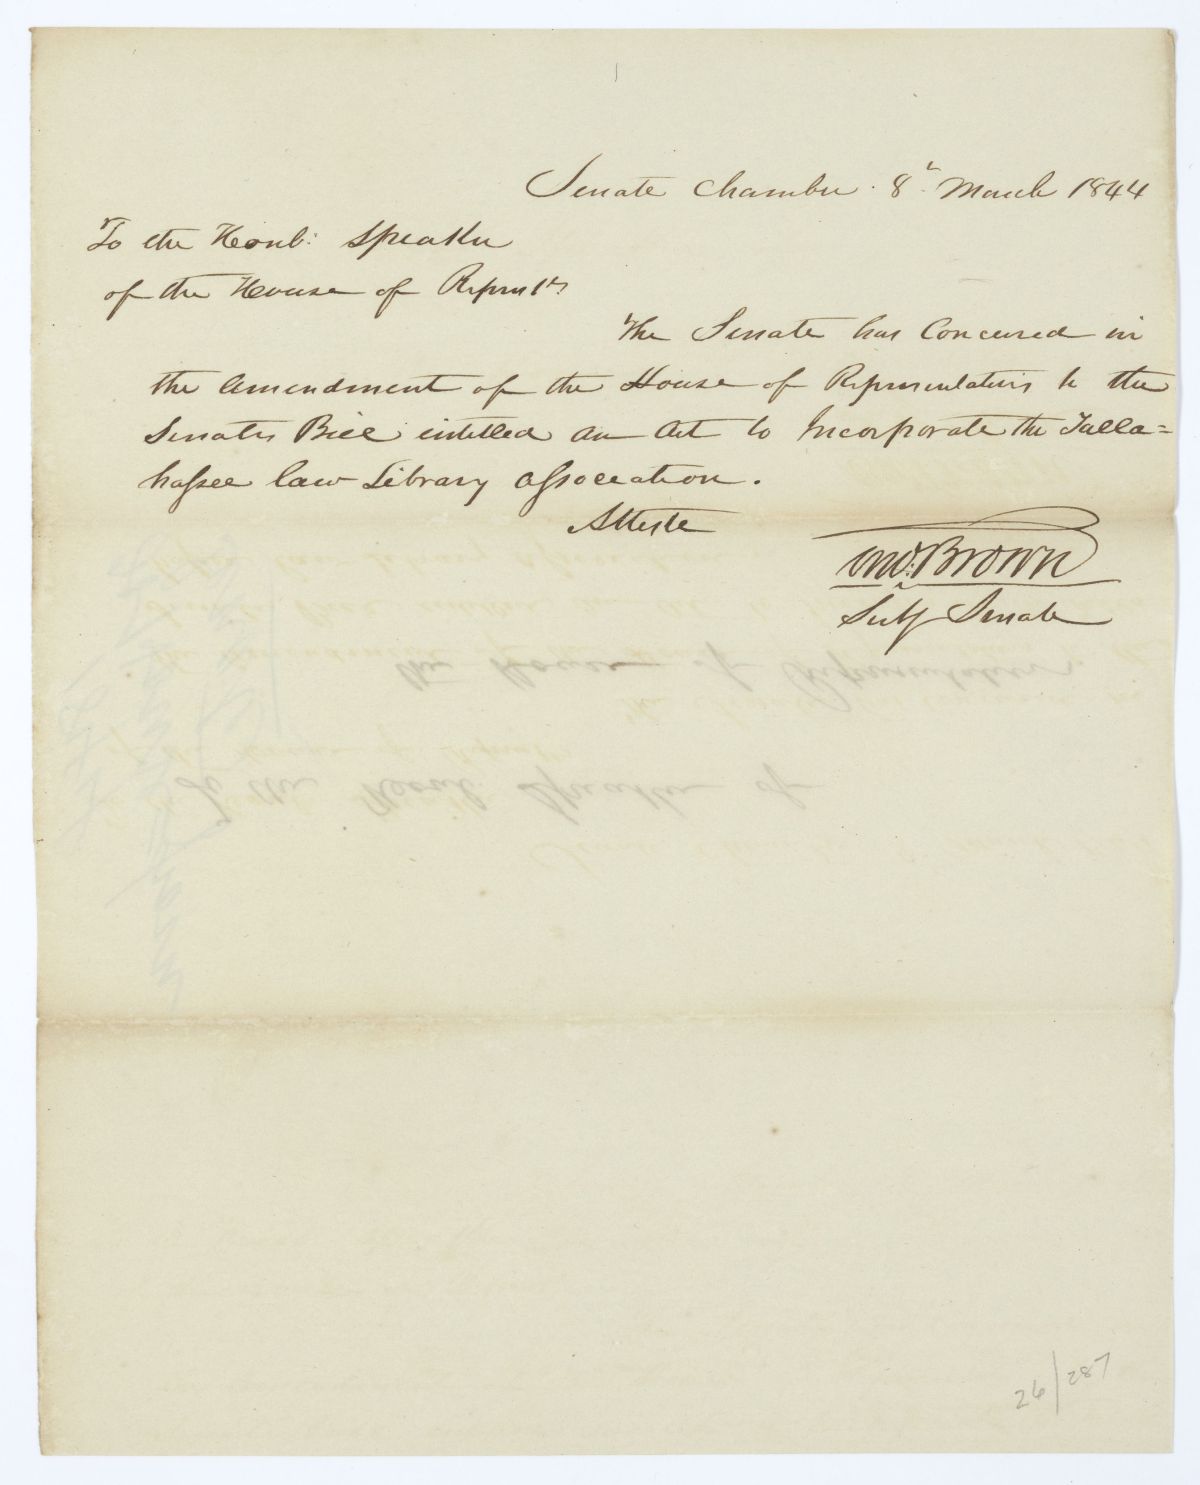 Senate Chamber. 8th March 1844
To the Honbl: Speaker
of the House of Represts
The Senate has Concured in
the amendment of the House of Representativs to the
Senates Bill intitled an Act to Incorporate the Talla=
hassee Law Library association.
Atteste
Tho: Brown
Secty Senate
26/287